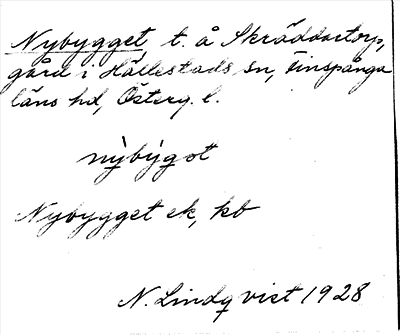 Nybygget, t. å Skräddartorp,
gård i Hällestads sn, Finspånga
läns hd, Österg. l.
nỳbýgot
Nybygget ek, kb
N. Lindqvist 1928